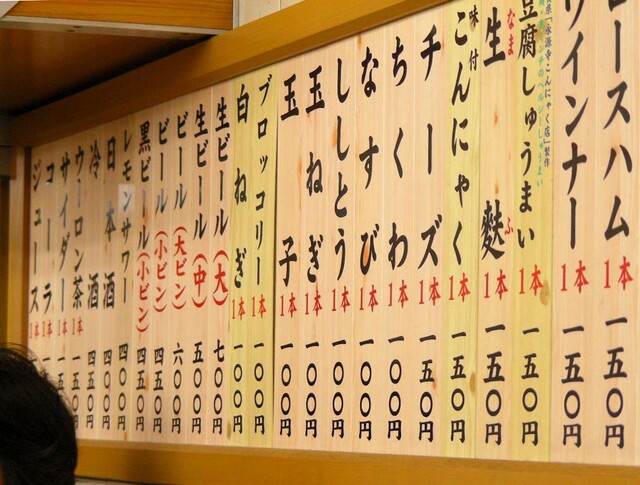 ースハム 1本 一五〇円
ウインナー 1本 一五〇円
「永源寺こんにゃく店」製作
のヘルシーしゅうまい
豆腐しゅうまい 1本 一五〇円
生麩 1本 一五〇円
なま ふ
味付
こんにゃく 1本 一五〇円
チーズ 1本 一五〇円
ちくわ 1本 一〇〇円
なすび 1本 一〇〇円
ししとう 1本 一〇〇円
玉ねぎ 1本 一〇〇円
玉子 1本 一〇〇円
ブロッコリー 1本 一〇〇円
白ねぎ 1本 一〇〇円
生ビール(大) 七〇〇円
生ビール(中) 五〇〇円
ビール(大ビン) 六〇〇円
ビール(小ビン) 四五〇円
黒ビール(小ビン) 四五〇円
レモンサワー 四〇〇円
日本酒 四〇〇円
冷酒 四五〇円
ウーロン茶 1本 一五〇円
サイダー 1本 一五〇円
コーラ 1本
ジュース 1本